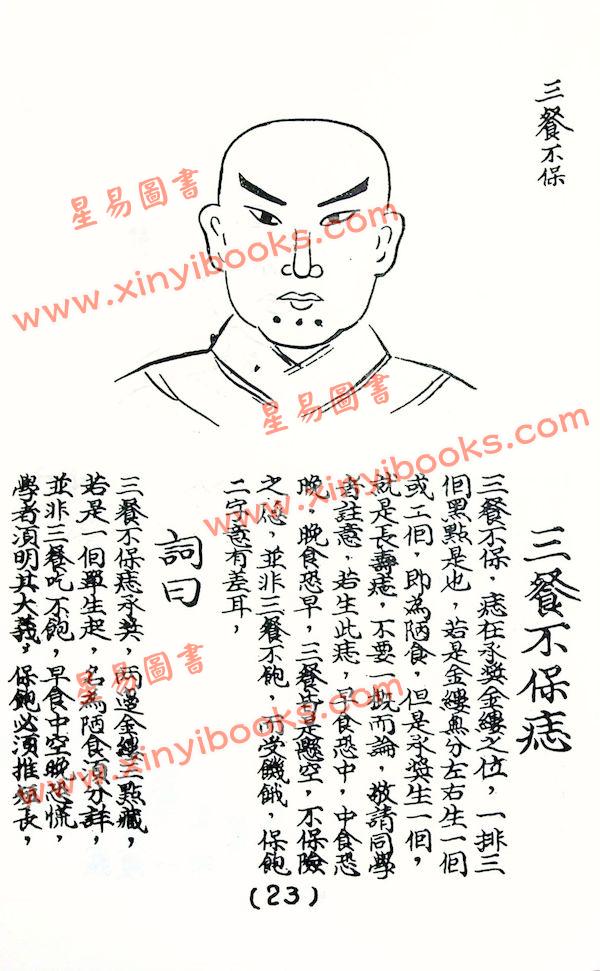 三餐不保
三餐不保痣
三餐不保，痣在承漿金縷之位，一排三
個黑點是也，若是金縷與分左右生一個
或二個，即為陋食，但是承漿生一個，
就是長壽痣，不要一概而論，敬請同學
者註意，若生此痣，早食恐中，中食恐
晚，晚食恐早，三餐皆是懸空，不保險
之態，並非三餐不飽，而受饑餓，保飽
二字意有差耳，
詞曰
三餐不保痣承漿，兩邊金縷三點藏，
若是一個單生起，名為陋食須分詳，
並非三餐吃不飽，早食中空晚恐慌，
學者須明其大義，保飽必須推短長，
(23)
星易圖書
www.xinyibooks.com
星易圖書
www.xinyibooks.com
星易圖書
www.xinyibooks.com